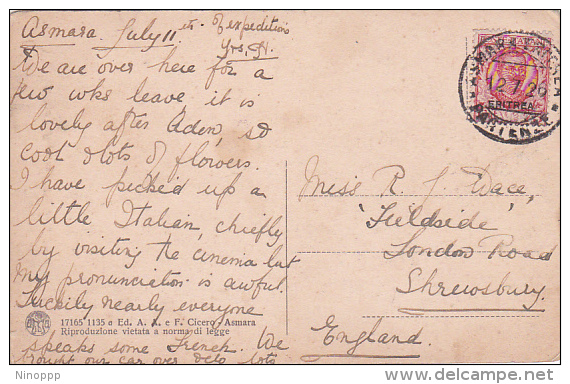 Asmara. July 11th.
We are over here for a
few wks leave, it is
lovely after Aden, so
cool & lots of flowers.
I have picked up a
little Italian, chiefly
by visiting the cinema but
my pronunciation is awful.
Luckily nearly everyone
speaks some French. We
brought our car over & lots
of expeditions
Yrs. H.
Miss R. J. Wace,
'Fieldside'
London Road
Shrewsbury.
England.
12.7.29
ERITREA
PARTENZE
17165 1135 e Ed. A. A. e F. Cicero-Asmara
Riproduzione vietata a norma di legge
Ninoppp
www.delcampe.net